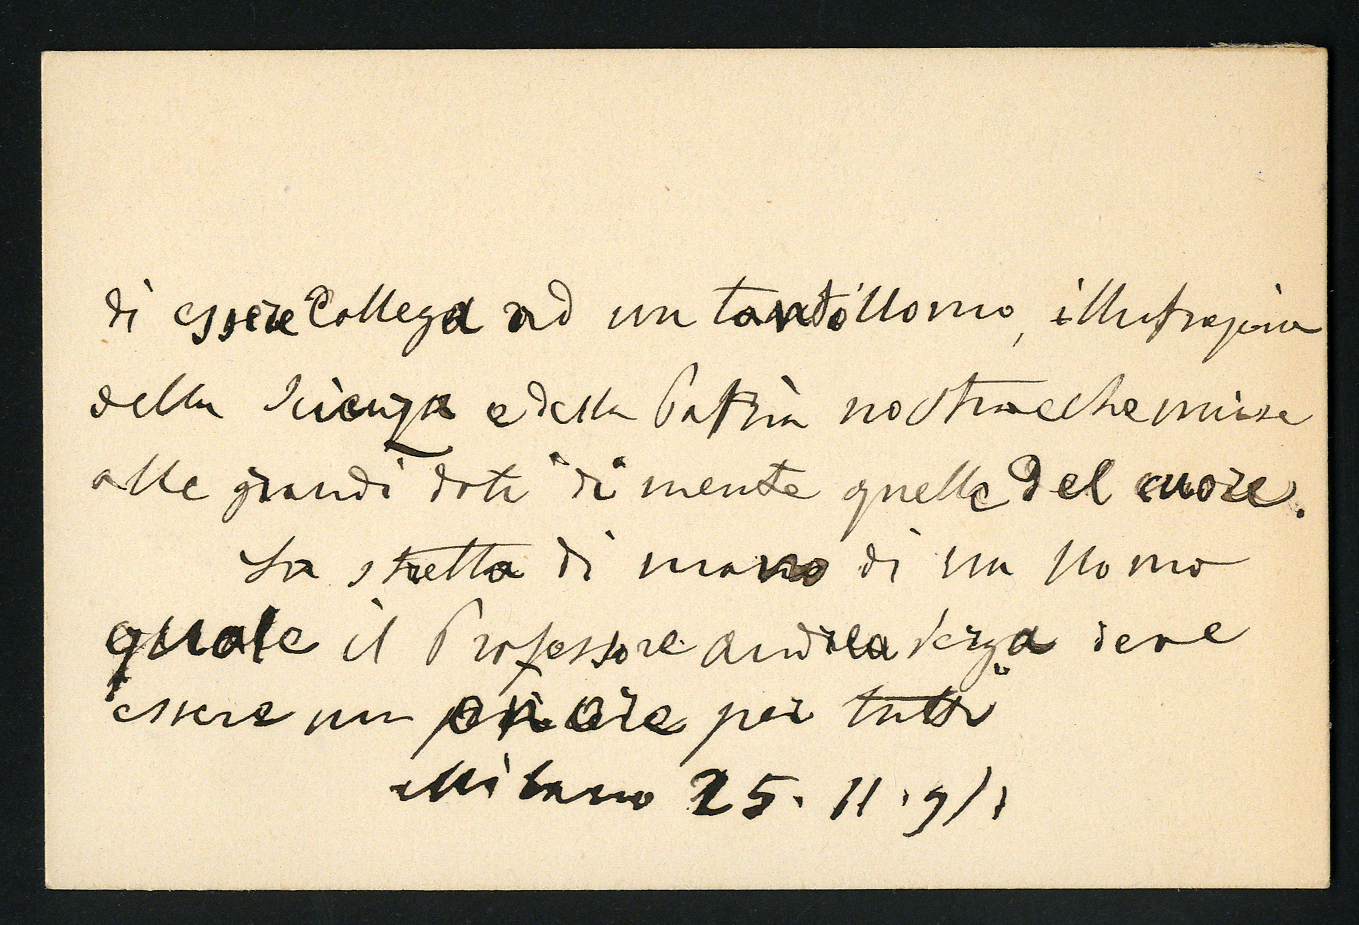 di essere Collega ad un tant'Uomo, illustrazione
della Scienza e della Patria nostra e che unisce
alle grandi doti di mente quelle del cuore.
La stretta di mano di un Uomo
quale il Professore Andrea Verga deve
essere un onore per tutti
Milano 25. 11. 91